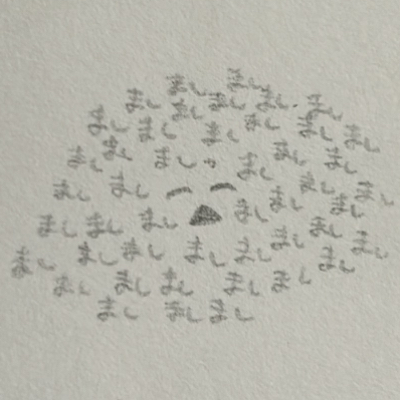 まし まし
まし まし まし まし まし
まし まし まし まし まし まし
まし まし まし まし まし まし
まし まし まし まし まし まし
まし まし まし まし まし
まし まし まし まし まし まし まし まし
まし まし まし まし まし
まし まし まし